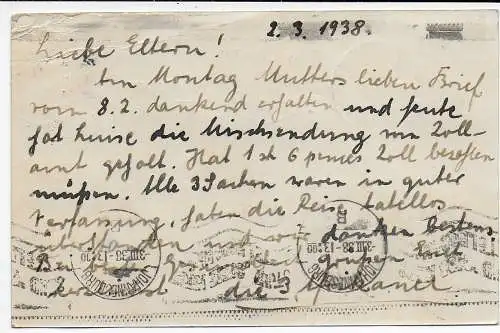 2. 3. 1938.
Liebe Eltern!
Am Montag Mutters lieben Brief
vom 8.2. dankend erhalten und heute
hat Luise die Mischsendung vom Zoll-
amt geholt. Hat 1 sh 6 pennies Zoll bezahlen
müßen. Alle 3 Sachen waren in guter
Verfassung, haben die Reise tadellos
überstanden und wir danken bestens.
Bei bester Gesundheit grüßen Euch
herzlichst die 3
JOHANNESBURG
3 III 38 · 13:00
JOHANNESBURG
3 III 38 · 13:00